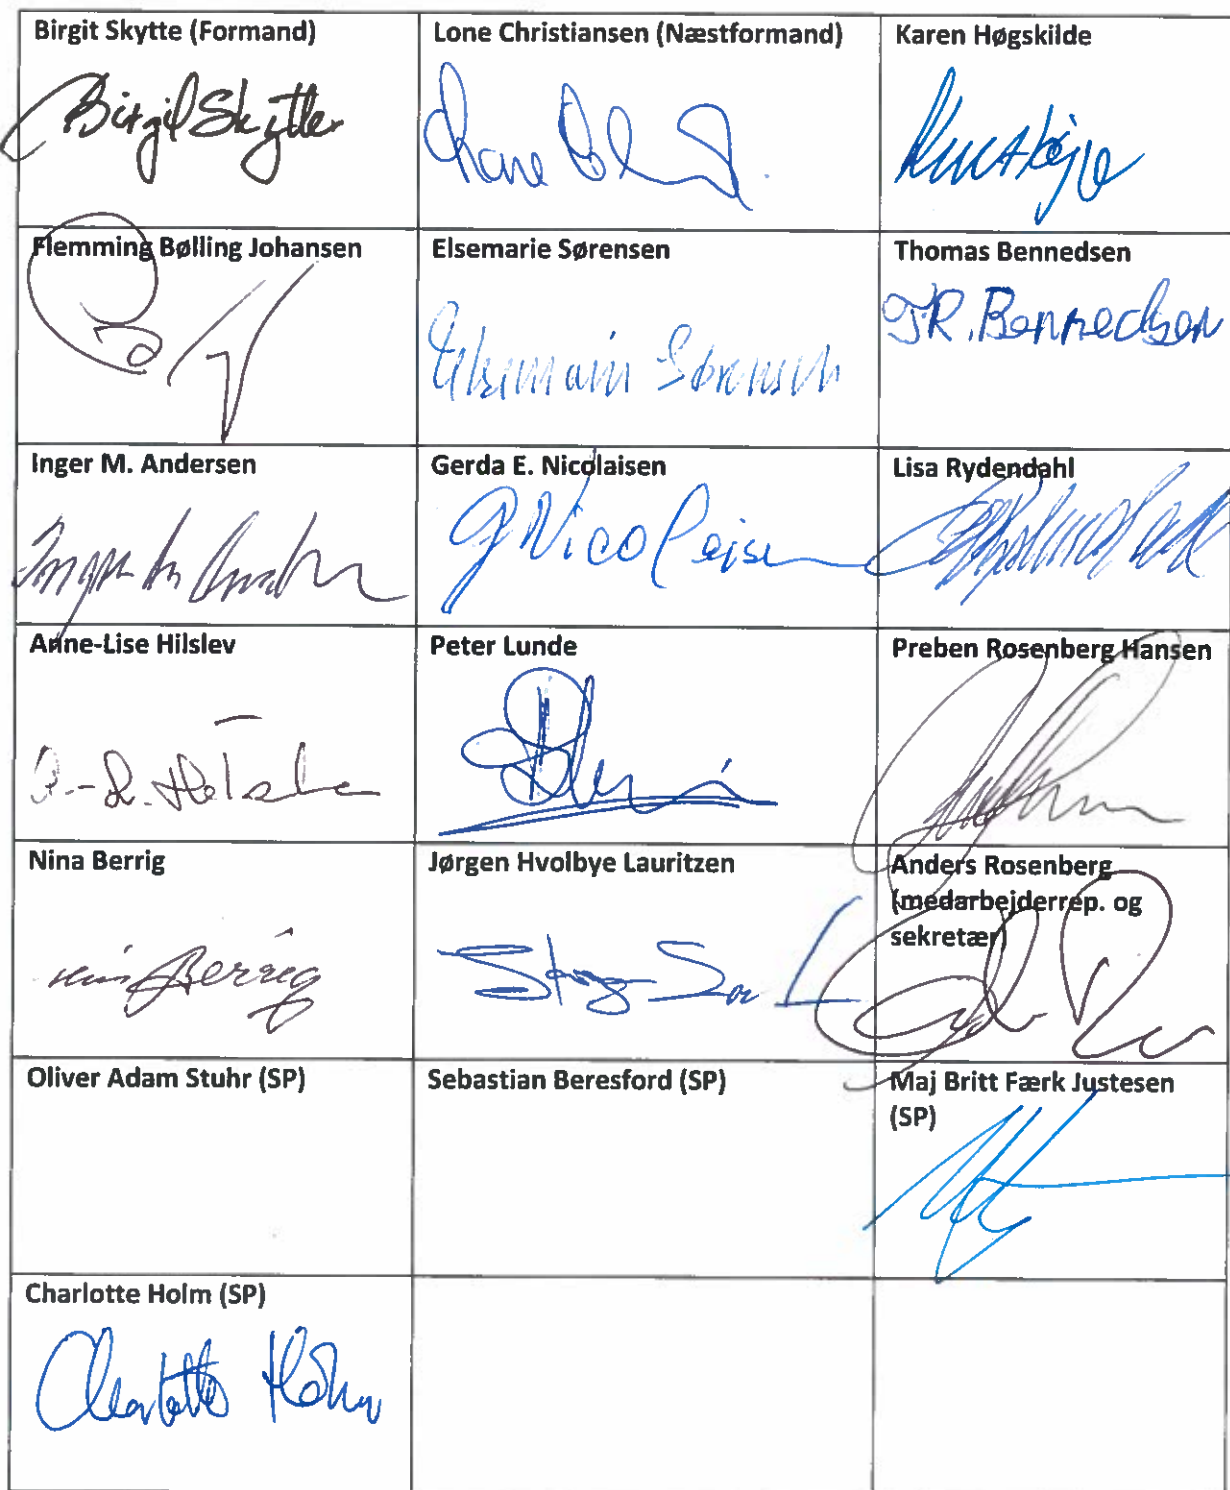 Birgit Skytte (Formand)
Birgit Skytte
Lone Christiansen (Næstformand)
Karen Høgskilde
Flemming Bølling Johansen
Elsemarie Sørensen
Elsemarie Sørensen
Thomas Bennedsen
T.R. Bennedsen
Inger M. Andersen
Gerda E. Nicolaisen
G Nicolaisen
Lisa Rydendahl
Anne-Lise Hilslev
Peter Lunde
Preben Rosenberg Hansen
Nina Berrig
Nina Berrig
Jørgen Hvolbye Lauritzen
Anders Rosenberg
(medarbejderrep. og
sekretær)
Oliver Adam Stuhr (SP)
Sebastian Beresford (SP)
Maj Britt Færk Justesen
(SP)
Charlotte Holm (SP)
Charlotte Holm